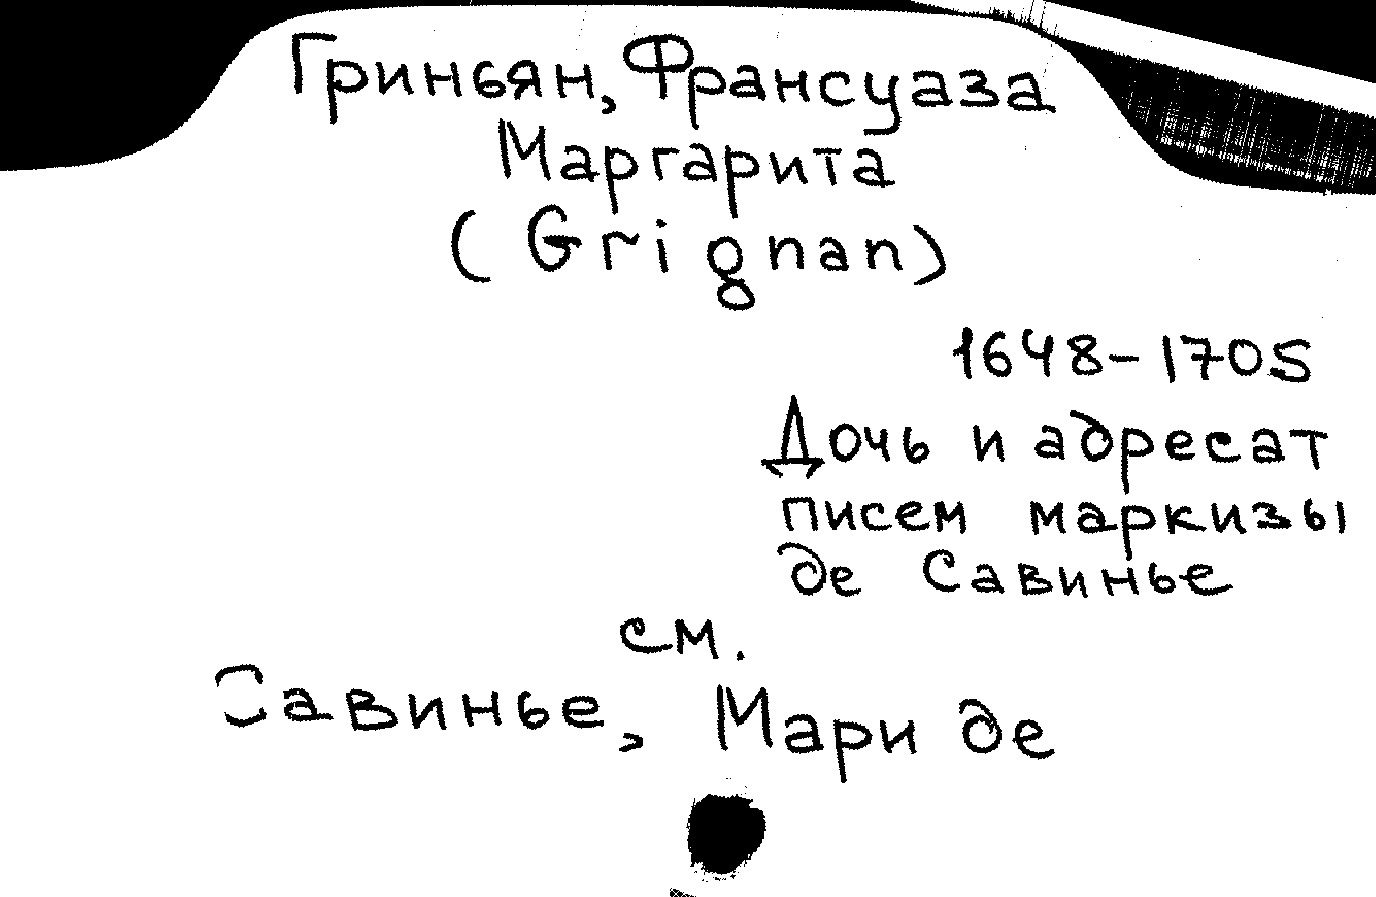 Гриньян, Франсуаза
Маргарита
(Grignan)
1648-1705
Дочь и адресат
писем маркизы
де Савинье
см.
Савинье, Мари де